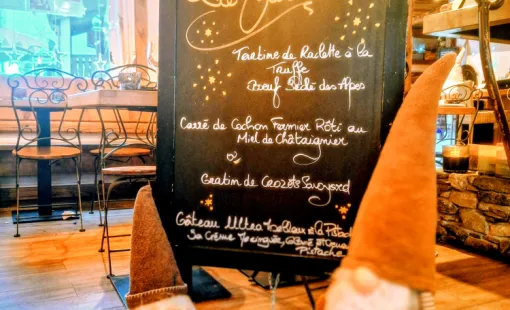 Tartine de Raclette à la
Truffe
Boeuf Séché des Alpes
Carré de Cochon Fermier Rôti au
Miel de Châtaignier
Gratin de Crozets Savoyard
Gâteau Ultra Moelleux à la Pistache
Sa Crème
Pistache